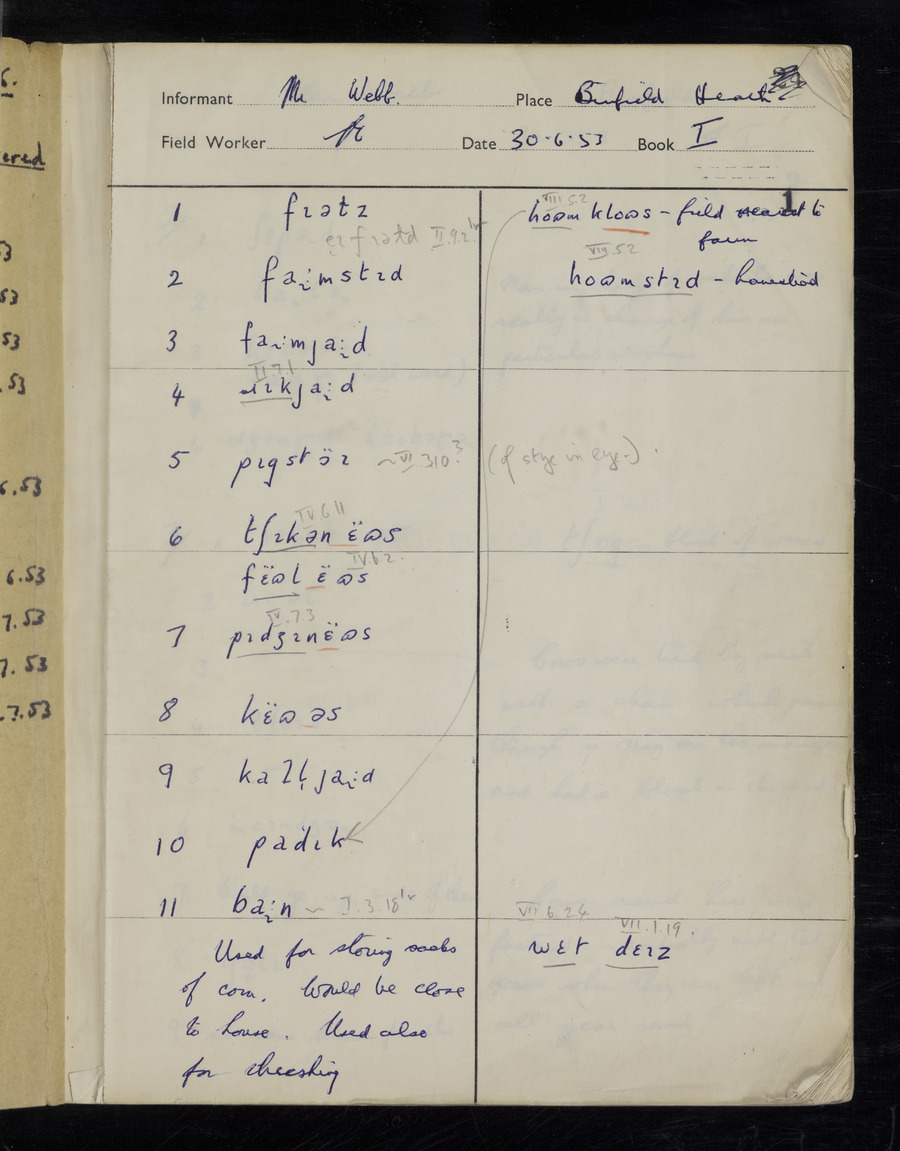 6.
ered
53
53
53
.53
6.53
6.53
7.53
7.53
.7.53
Informant Mr Webb. Place Binfield Heath
Field Worker Date 30·6·53 Book I
1
1 fɪəɫz
VIII.5.2
hoʊm kloʊs – field nearest to
farm
II.9.2
2 faɪːmstɪd
VIII.5.2
hoʊmstɪd – homestead
3 faɪːmjaɪːd
II.7.1
4 ɹɪkjaɪːd
5 pɪgstöɪ ~VI.3.10? (of stye in eye.)
IV.6.11
6 tʃɪkən ëʊs
IV.6.2.
fëʊl ëʊs
IV.7.3
7 pɪdʒɪnëʊs
8 këʊ əs
9 kaʔl̩jaɪːd
10 padɪk
11 baɪːn ~ I.3.18
Used for storing sacks
of corn. Would be close
to house. Used also
for threshing
VII.6.24
VII.1.19.
wɛt dɛɪz